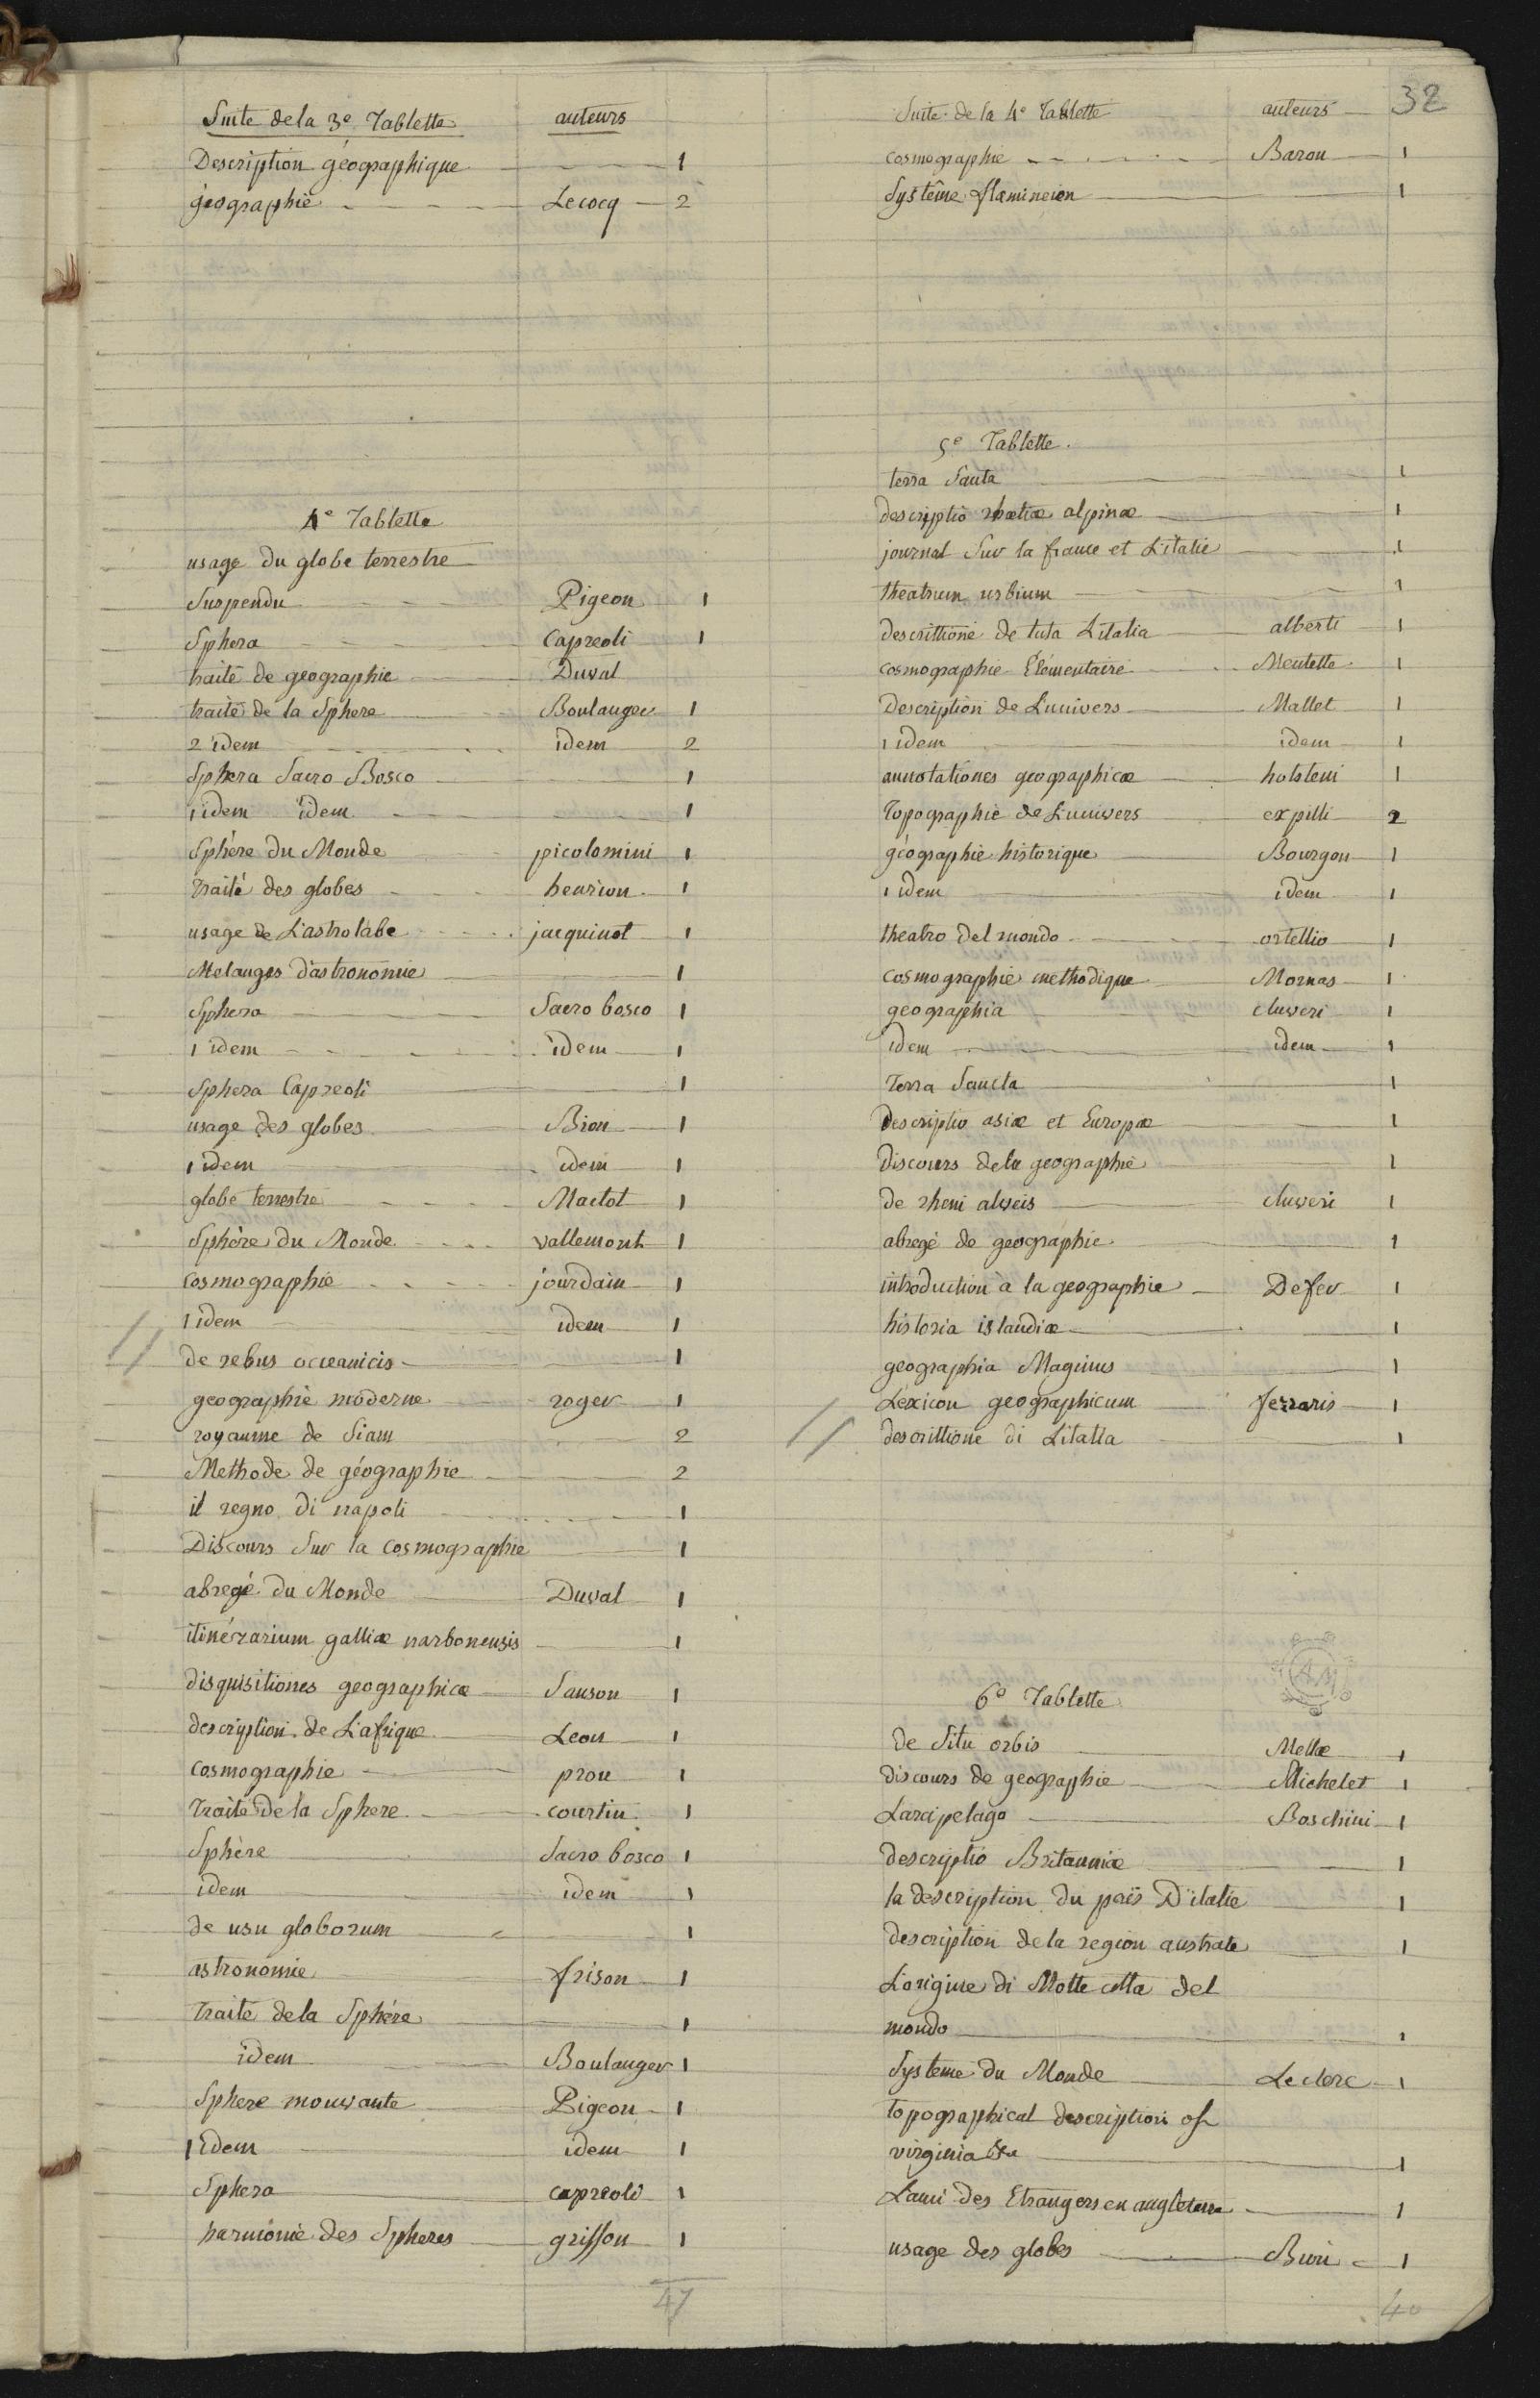 32
Suite de la 3e Tablette auteurs
Description géographique 1
géographie Lecocq 2
4e Tablette
usage du globe terrestre
Suspendu Pigeon 1
Sphera Capreoli 1
traité de geographie Duval
traité de la Sphere Boulanger 1
2 idem idem 2
Sphera Sacro Bosco 1
1 idem idem 1
Sphère du Monde picolomini 1
Traité des globes henrion 1
usage de L'astrolabe jacquinot 1
Melanges d'astronomie 1
Sphera Sacro bosco 1
1 idem idem 1
Sphera Capreoli 1
usage des globes Bion 1
1 idem idem 1
globe terrestre Mactot 1
Sphère du Monde vallemont 1
cosmographie jourdain 1
1 idem idem 1
de rebus occeanicis 1
geographie moderne roger 1
royaume de Siam 2
Methode de géographie 2
il regno di napoli 1
Discours Sur la cosmographie 1
abregé du Monde Duval 1
itinérarium galliæ narbonensis 1
disquisitiones geographicæ Sanson 1
description de L'afrique Leon 1
cosmographie prou 1
Traité de la Sphere courtin 1
Sphère Sacro bosco 1
idem idem 1
de usu globorum 1
astronomie frison 1
Traité de la Sphére 1
idem Boulanger 1
Sphere mouvante Pigeon 1
1 Idem idem 1
Sphera capreoli 1
harmonie des Spheres griffon 1
47
Suite de la 4e Tablette auteurs
cosmographie Baron 1
Systême flamineien 1
5e Tablette.
terra Santa 1
descriptio rhætiæ alpinæ 1
journal Sur la france et L'italie 1
theatrum urbium 1
descrittione de tuta L'italia alberti 1
cosmographie Élémentaire Mentelle 1
Description de L'univers Mallet 1
1 idem idem 1
annotationes geographicæ holsteni 1
Topographie de L'univers expilli 2
géographie historique Bourgon 1
1 idem idem 1
theatro del mondo ortellio 1
cosmographie methodique Mornas 1
geographia cluveri 1
idem idem 1
Terra Sancta 1
Descriptio asiæ et Europæ 1
Discours de la geographie 1
de rheni alveis cluveri 1
abregé de geographie 1
introduction à la geographie Defer 1
historia islandiæ 1
geographia Maginus 1
Lexicon geographicum ferraris 1
descrittione di L'italia 1
6e Tablette
de Situ orbis Mellæ 1
discours de geographie Michelet 1
L'arcipelago Boschini 1
descriptio Britanniæ 1
la description du païs D'italie 1
description de la region australe 1
L'origine di Molte citta del
mondo 1
Systeme du Monde Leclerc 1
topographical description of
virginia &a 1
L'ami des Etrangers en angleterre 1
usage des globes Bion 1
40